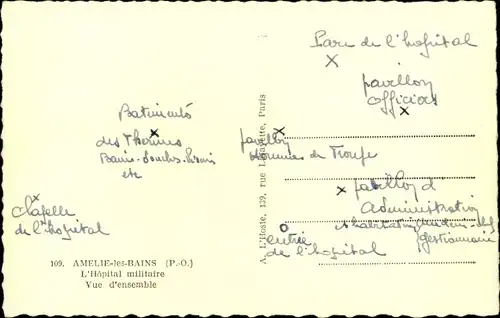 Parc de l'hopital
pavillon
officiers
Batiments
des Thermes
Bains-douches-
etc
pavillon
hommes de Troupe
pavillon d'
Administration
gestionnaire
entrée
de l'hopital
Chapelle
de l'hopital
109. AMELIE-les-BAINS (P.-O.)
L'Hôpital militaire
Vue d'ensemble
A. L'Hoste, 139, rue Lafayette, Paris